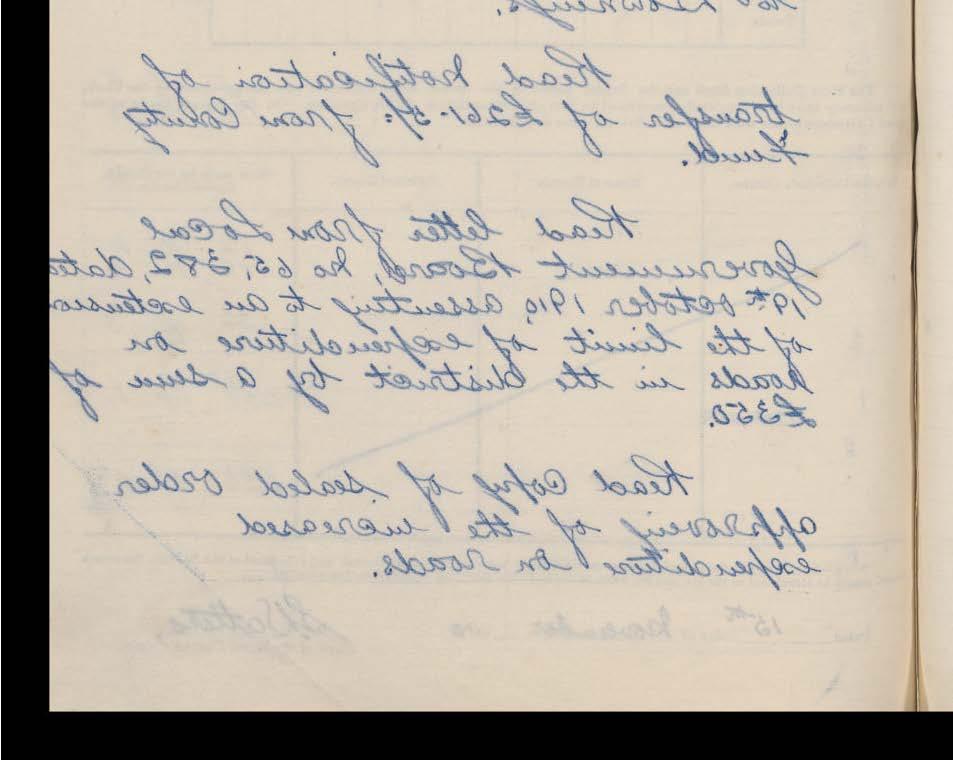 Read Notification of
transfer of £261.5/- from County
Fund.
Read letter from Local
Government Board, No 65,382, dated
19th October 1910, assenting to an extension
of the limit of expenditure on
Roads in the District by a sum of
£350.
Read Copy of sealed order
approving of the increased
expenditure on roads.
15th November 10